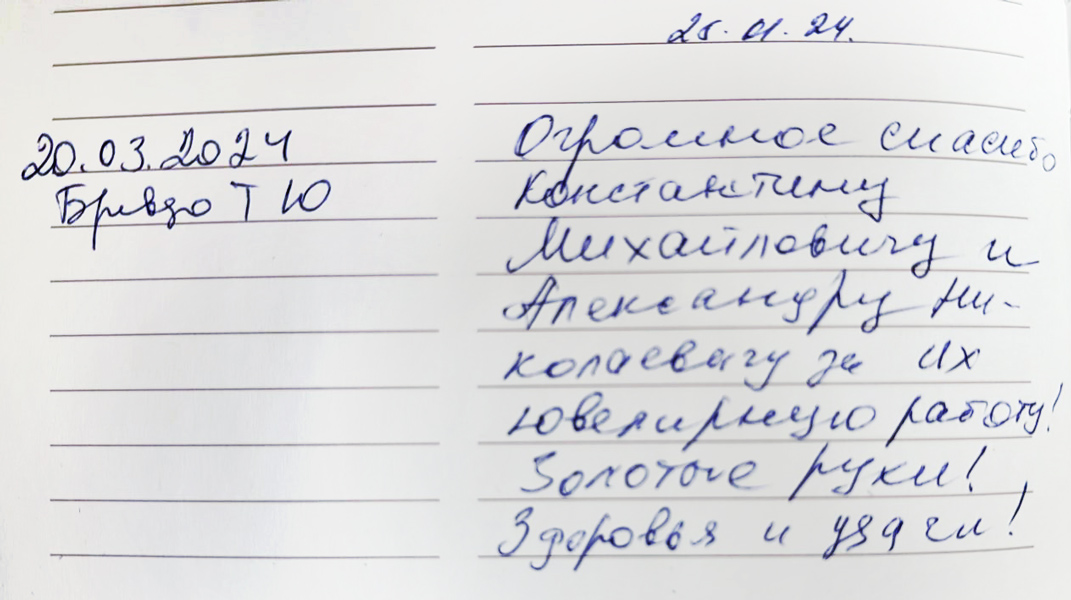 20.03.2024
Бривдо Т Ю
25.01.24.
Огромное спасибо
Константину
Михайловичу и
Александру Ни-
колаевичу за их
ювелирную работу!
Золотые руки!
Здоровья и удачи!